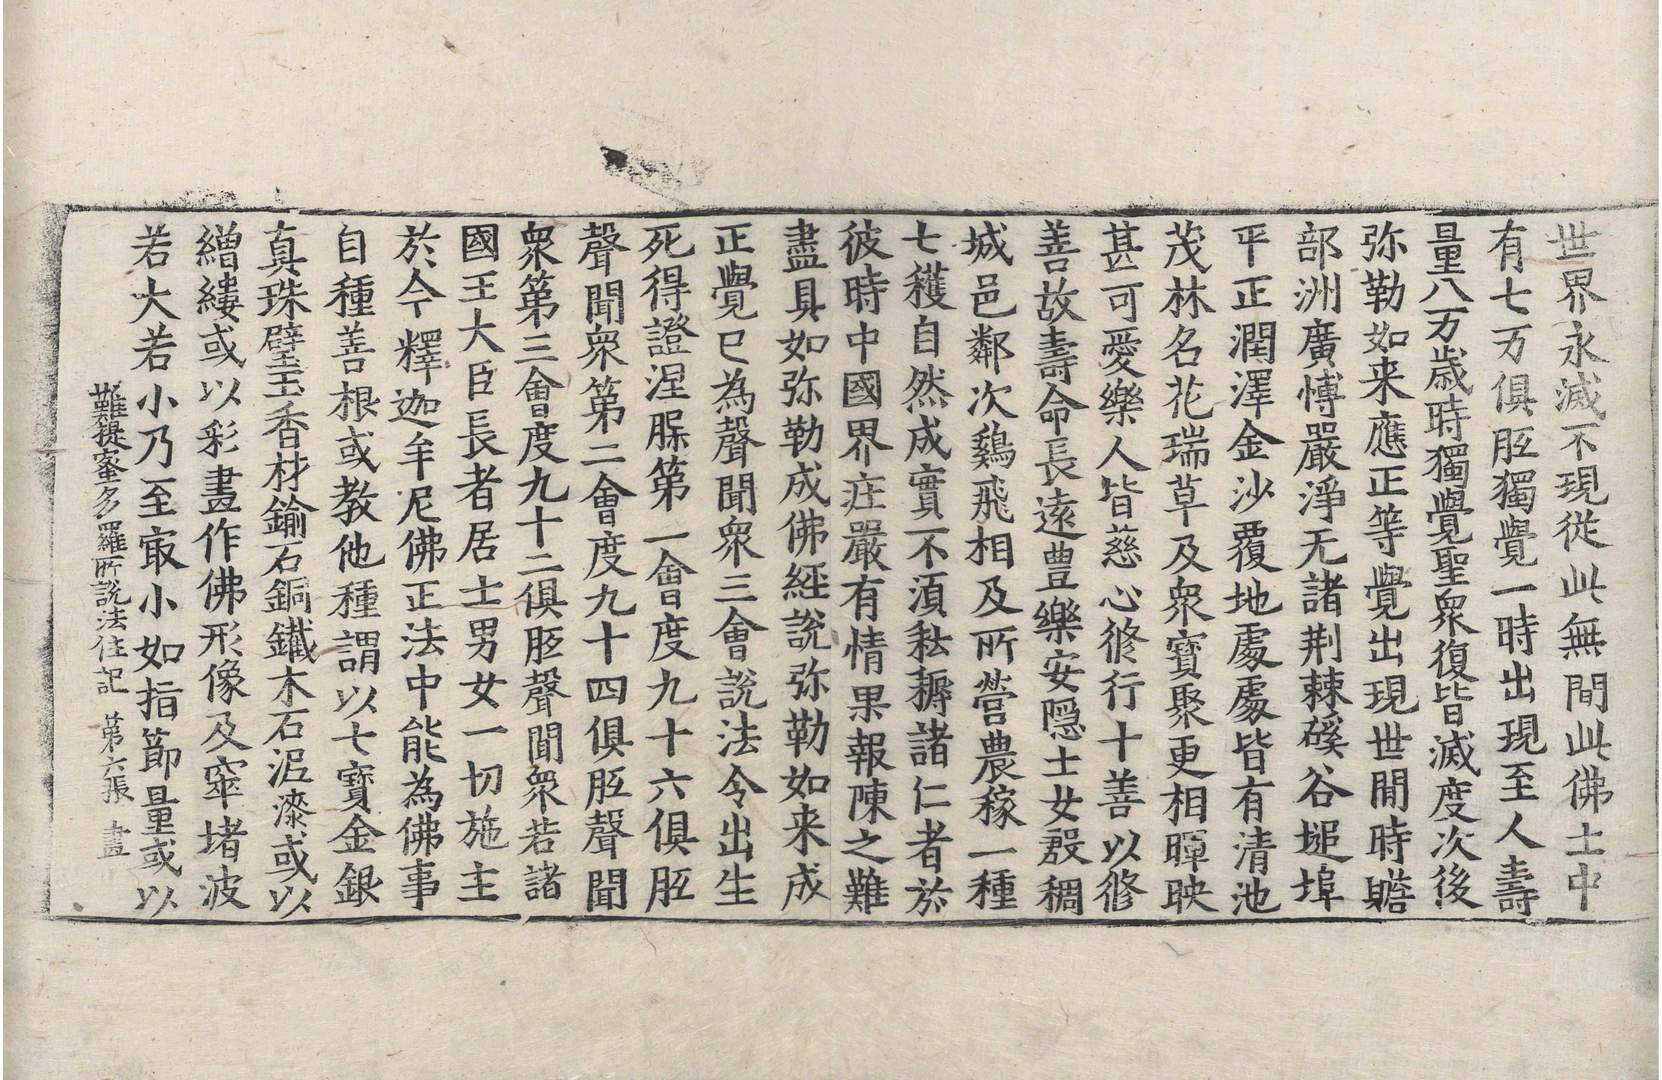 世界永滅不現從此無間此佛土中
有七万俱胝獨覺一時出現至人壽
量八万歲時獨覺聖衆復皆滅度次後
弥勒如来應正等覺出現世間時贍
部洲廣博嚴淨无諸荆棘磎谷塠埠
平正潤澤金沙覆地處處皆有清池
茂林名花瑞草及衆寶聚更相暉映
甚可愛樂人皆慈心修行十善以修
善故壽命長遠豊樂安隱士女殷稠
城邑鄰次鷄飛相及所營農稼一種
七穫自然成實不湏耘耨諸仁者於
彼時中國界庄嚴有情果報陳之難
盡具如弥勒成佛經說弥勒如来成
正覺已為聲聞衆三會說法令出生
死得證涅槃第一會度九十六俱胝
聲聞衆第二會度九十四俱胝聲聞
衆第三會度九十二俱胝聲聞衆若諸
國王大臣長者居士男女一切施主
於今釋迦牟尼佛正法中能為佛事
自種善根或教他種謂以七寶金銀
真珠璧玉香材鍮石銅鐵木石泥漆或以
繒縷或以彩畫作佛形像及窣堵波
若大若小乃至冣小如指節量或以
難提蜜多羅所說法住記 第六張 畫